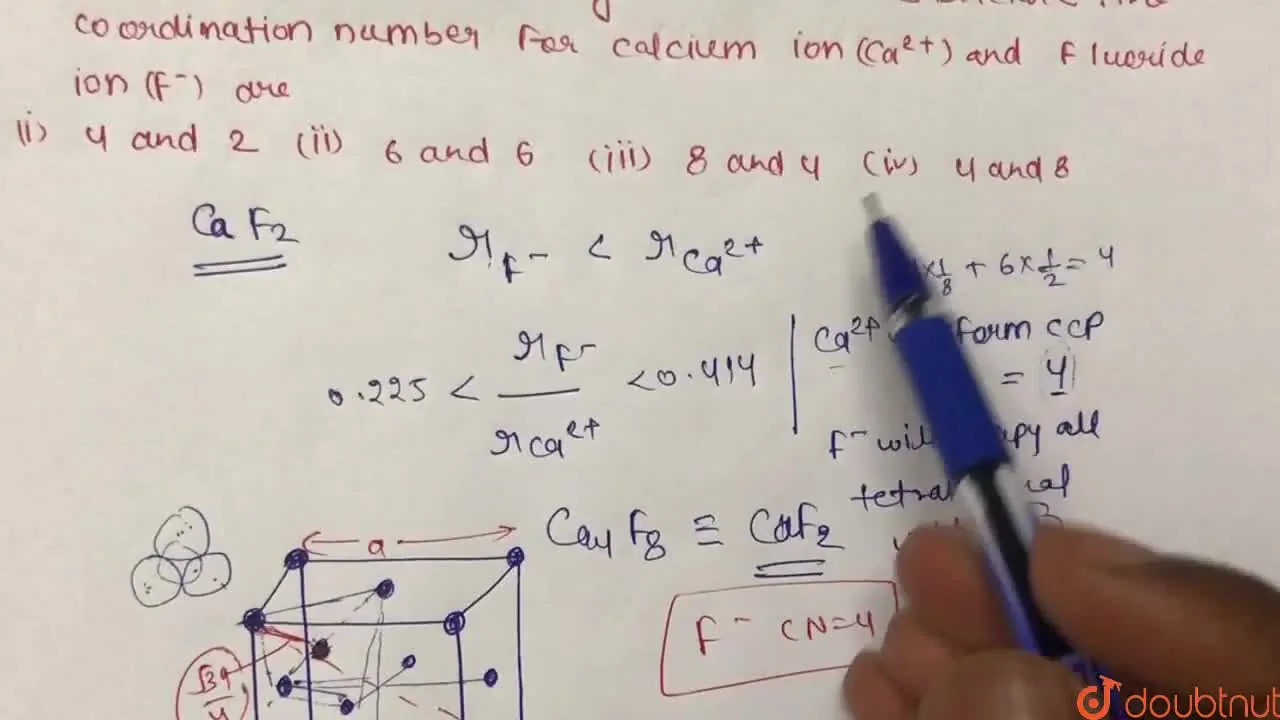 coordination number for calcium ion (Ca²⁺) and Fluoride
ion (F⁻) are
(i) 4 and 2 (ii) 6 and 6 (iii) 8 and 4 (iv) 4 and 8
CaF₂
r F⁻ < r Ca²⁺
×1/8 + 6×1/2 = 4
0.225 < r F⁻ / r Ca²⁺ < 0.414
Ca²⁺ form ccp
= 4
F⁻ will all
Ca₄F₈ ≡ CaF₂
a
F⁻ CN=4
√3a/4
doubtnut